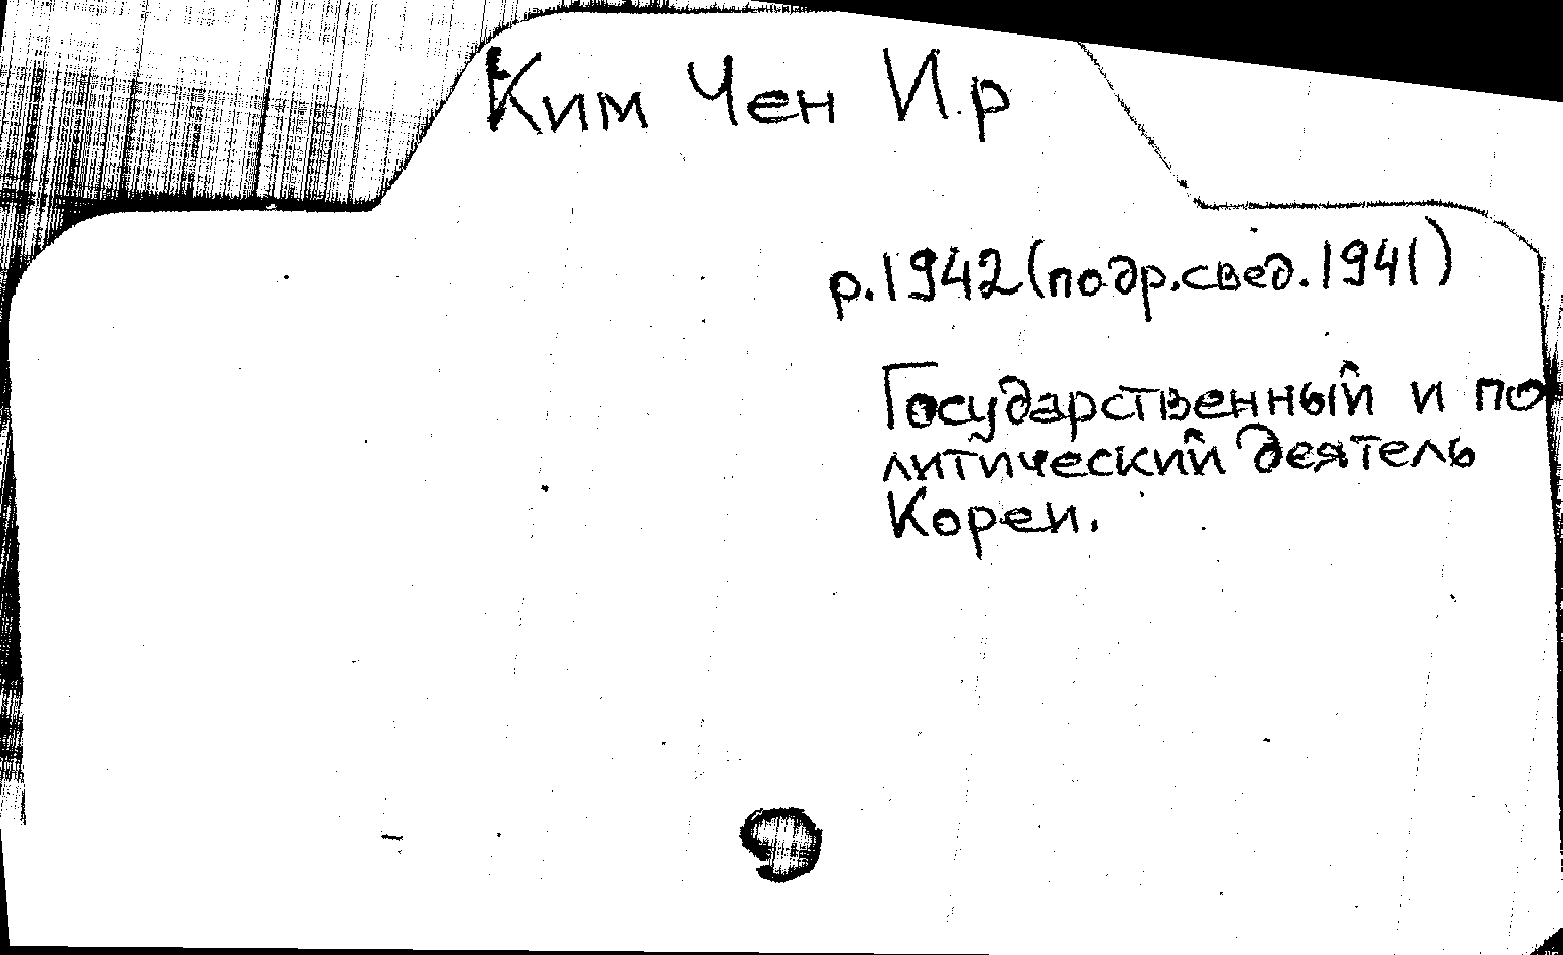 Ким Чен Ир
р.1942(подр.свед.1941)
Государственный и по
литический деятель
Кореи.